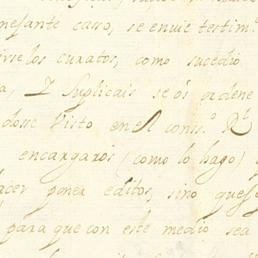 nesante casso, se envie testim.º
irse los curatos, como sucedio
a, I suplicais se ôs ordene
dosse Visto en el cons.º R.l
encargaros (como lo hago)
acer poner editos, sino que
para que con este medio sea